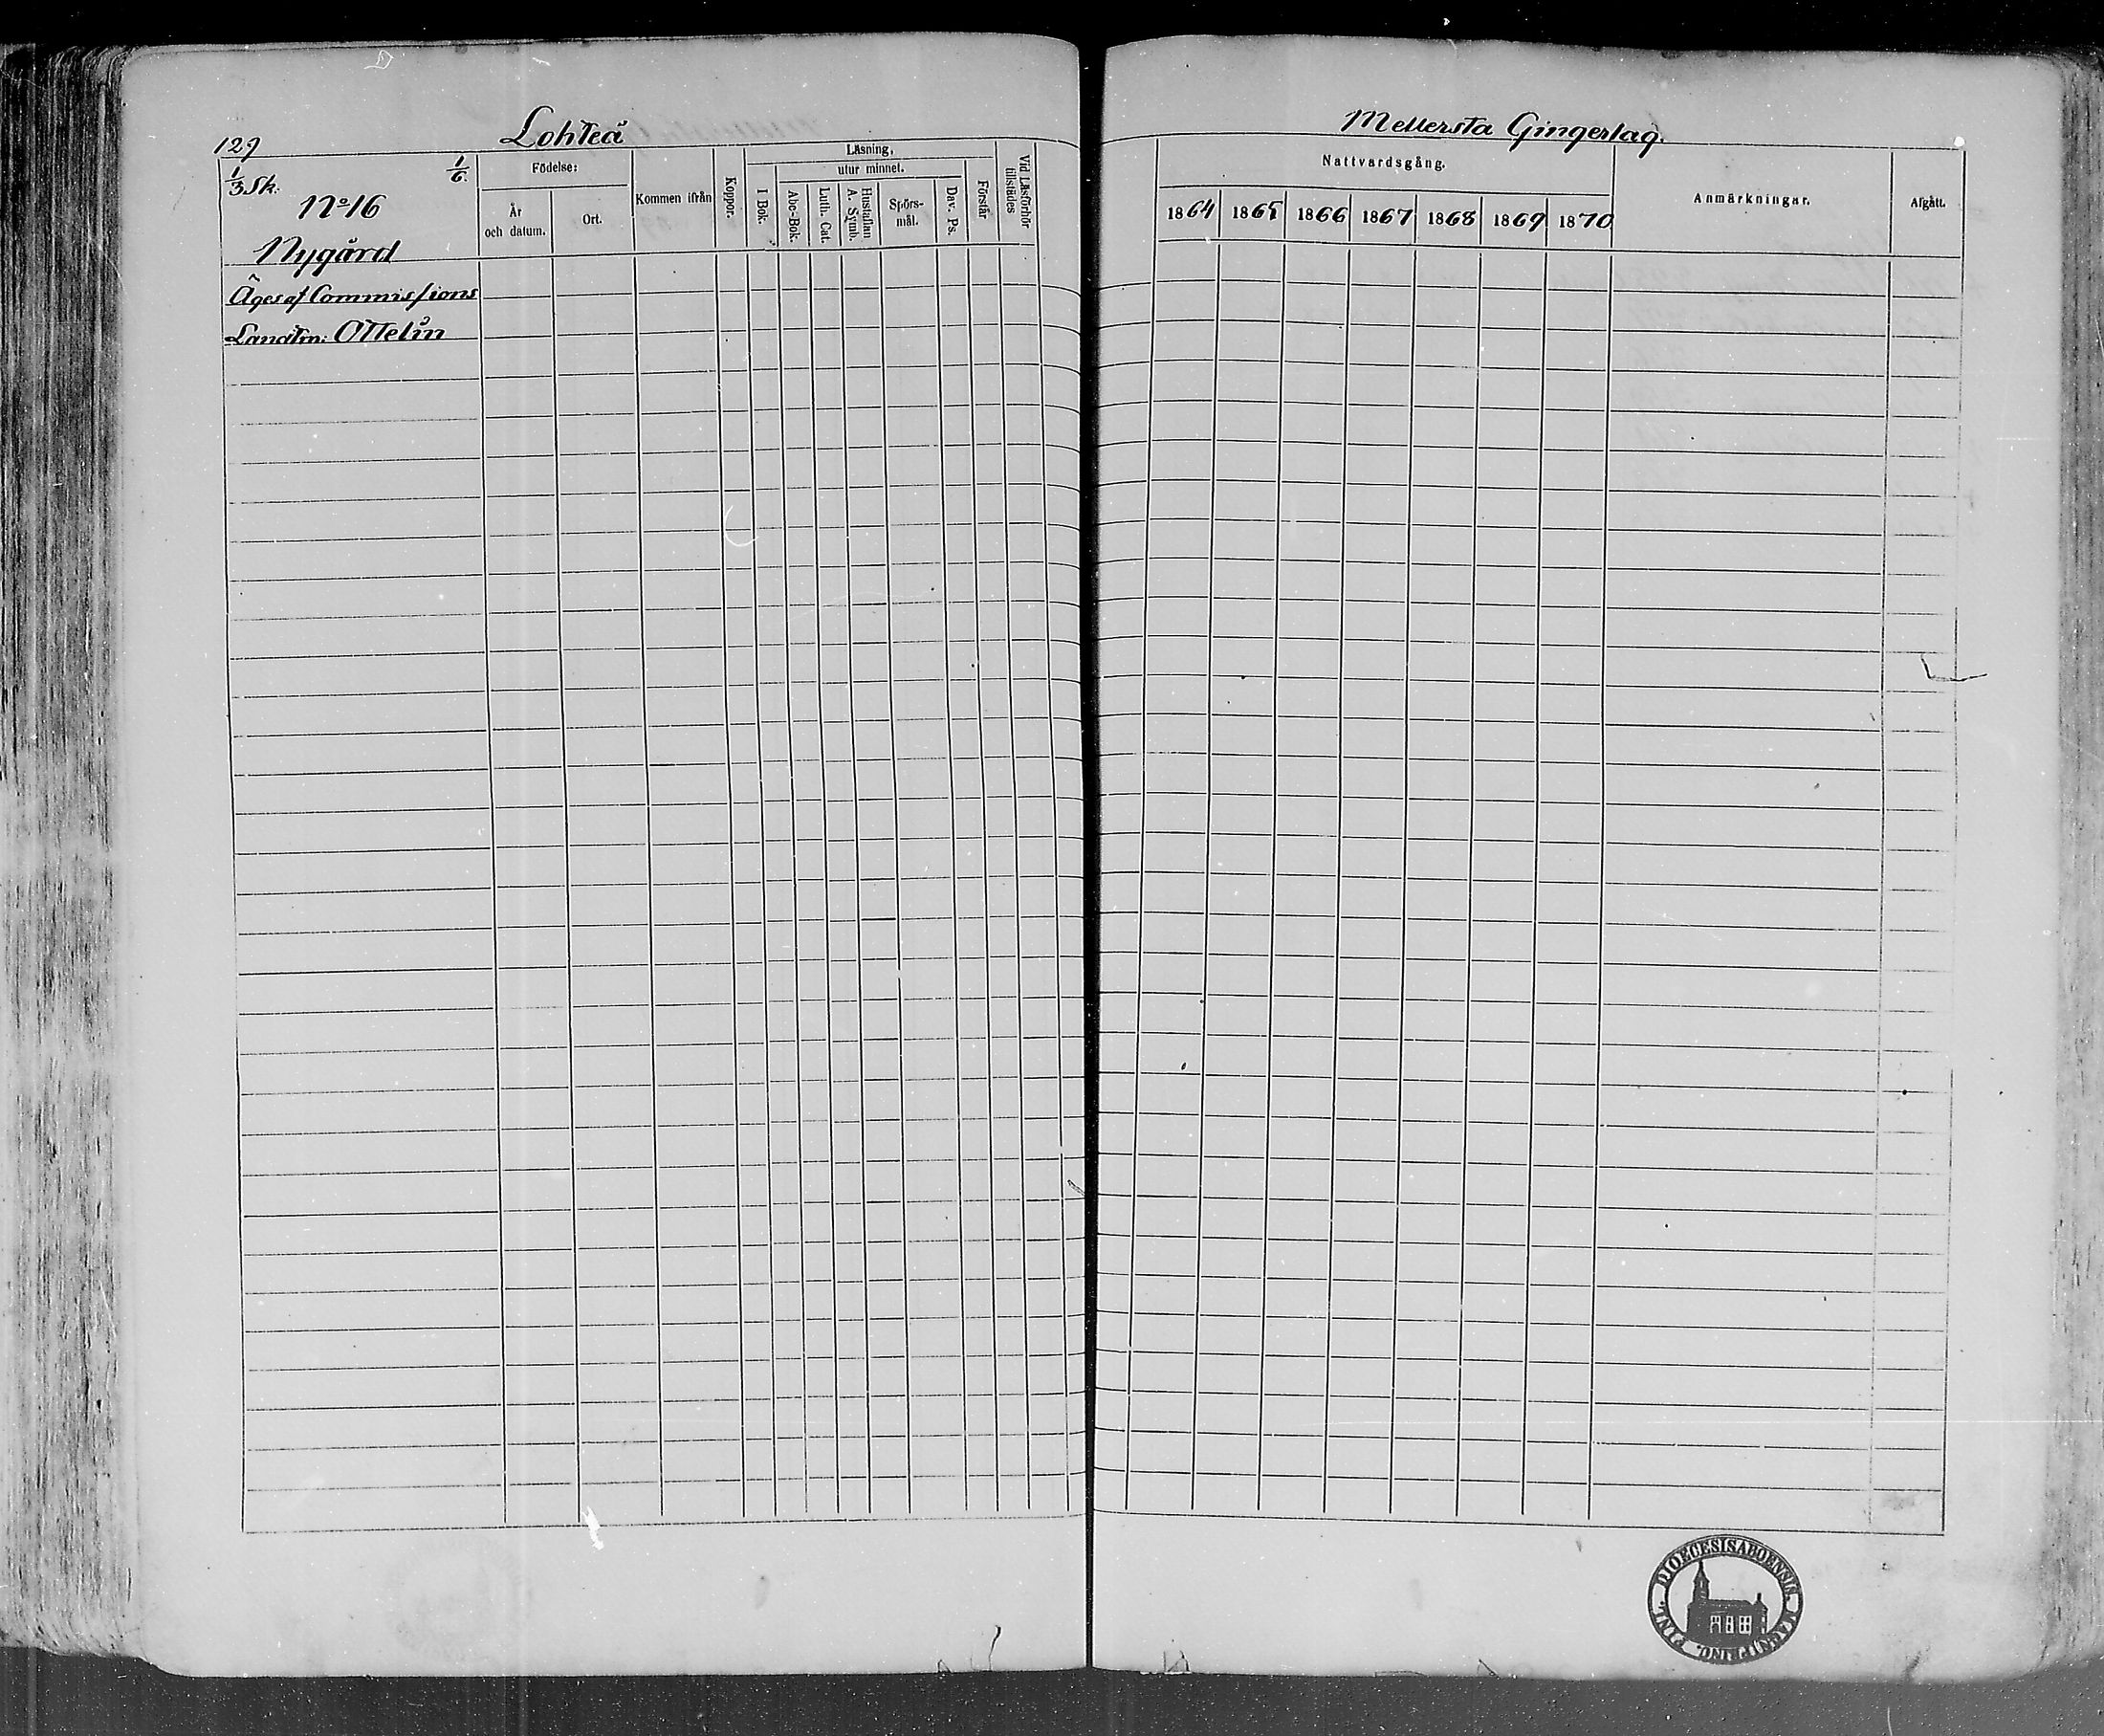 129 Lohteå
1/3 Sk. 1/6.
No 16
Nygård
Äges af Commissions
Landtm: Ottelin
Födelse:
År och datum.
Ort.
Kommen ifrån
Koppor.
Läsning,
utur minnet.
I Bok.
Abc-Bok.
Luth. Cat.
Hustaflan A. Symb.
Spörs-mål.
Dav. Ps.
Förstår
Vid Läsförhör tillstädes
Mellersta Gingerlag.
Nattvardsgång.
1864 1865 1866 1867 1868 1869 1870
Anmärkningar.
Afgått.
DIOECESIS ABOENSIS. MAGNI PRINC. FINL.